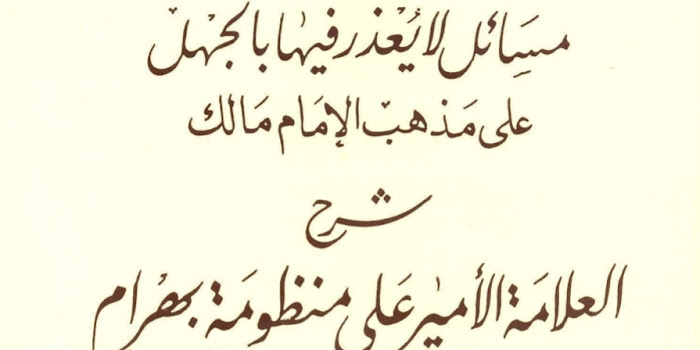 مسائل لا يعذر فيها بالجهل
على مذهب الإمام مالك
شرح
العلامة الأمير على منظومة بهرام